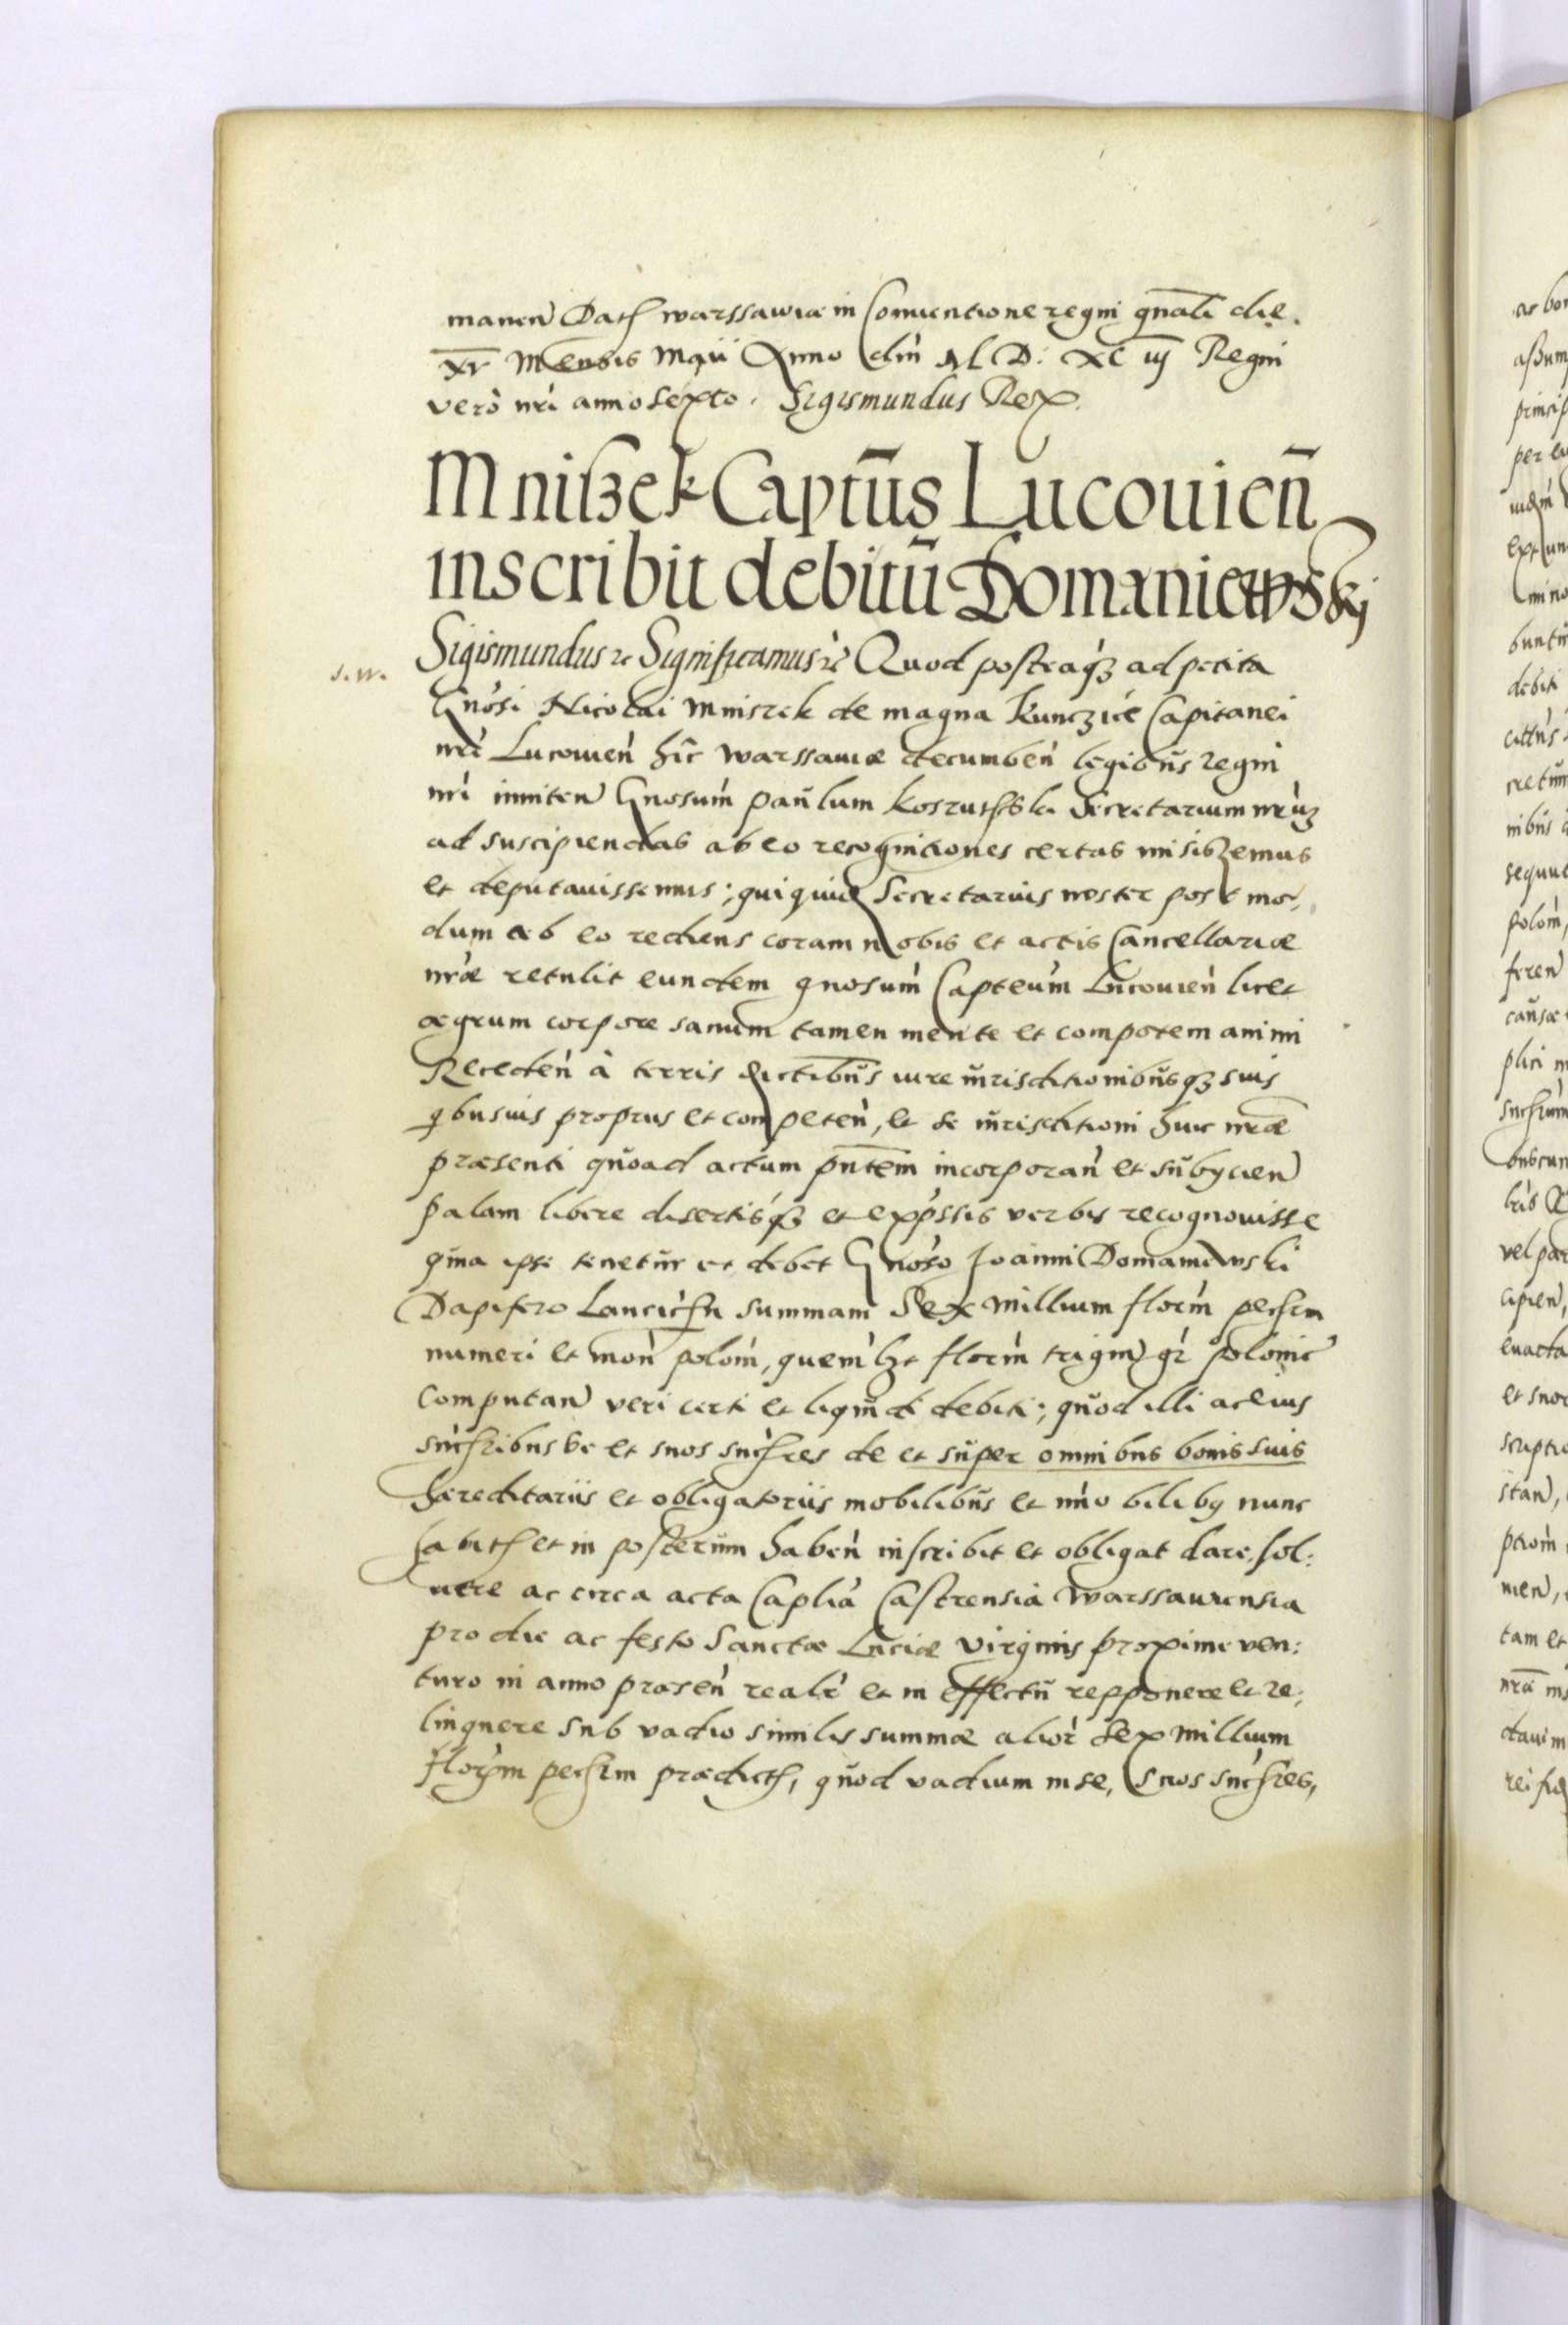 manen Datt warssawiæ in Conuentione regni gnali die.
xv Mensis Maii Anno dni M D: XC iij Regni
vero nri anno Sexto. Sigismundus Rex.
Mniszek Captūs Lucouieñ
inscribit debitū Domaniewskj
s.w.
Sigismundus rc Significamus rc Quod posteaqz ad petita
Gnosi Nicolai Mniszek de magna Kunczicze Capitanei
nri Lucouien hic Warssauiæ decumben legibus regni
nri inniten Gnosum Paulum Koszutski Secretarium nrum
ad suscipiendas ab eo recognitiones certas misissemus
et deputauissemus; qui quid Secretarius noster post mo,
dum ab eo rediens coram nobis et actis Cancellariæ
nræ retulit eundem gnosum Capteum Lucouien licet
ægrum corpore sanum tamen mente et compotem animi
Receden à terris districtibus iure iurisditionibusqz suis
qbusuis propriis et competen, et se iurisditioni huic nræ
præsenti quoad actum pntem incorporan et subijcien
palam libere disertisqz et expssis verbis recognouisse
quia ipse tenetur et debet Gnoso Joanni Domaniewski
Dapifero Lancicien summam Sex Millium florm pecunm
numeri et mon polom, quemlzt florm trigin gr polonic
Computan veri certi et liquidi debiti; quod illi ac eius
succribus se et suos succres de et super omnibus bonis suis
hæreditariis et obligatoriis mobilibus et imobilibq nunc
habitis et in posterum haben inscribit et obligat dare, sol:
uere ac circa acta Caplia Castrensia Warssauiensia
pro die ac festo Sanctæ Luciæ Virginis proxime ven:
turo in anno præsen realr et in effectu repponere et re,
linquere sub vadio similis summæ alior sex millium
florym pecunm prædict, quod vadium in se, Suos succres,